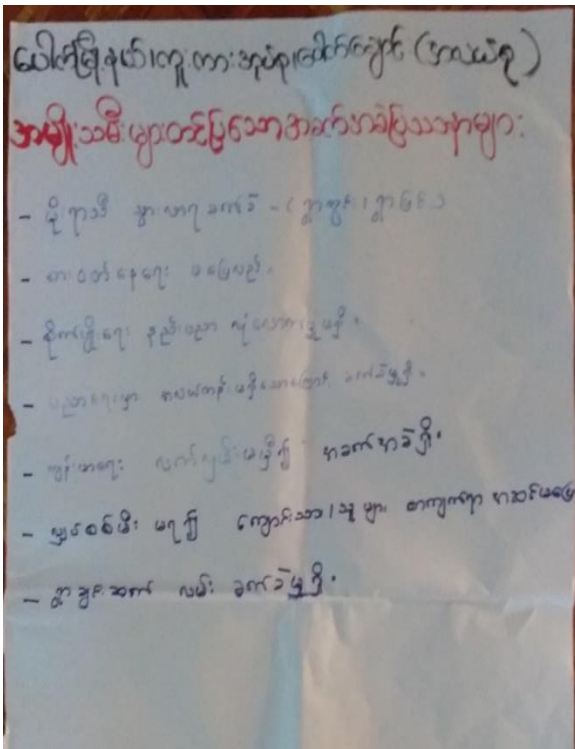 ပေါက်မြို့နယ်၊ကူးကားအုပ်စု၊ပေါက်ချောင် (အလယ်စု)
အမျိုးသမီးများတင်ပြသောအခက်အခဲပြဿနာများ
- မိုးရာသီ သွားလာရခက်ခဲ - (ရွာတွင်း၊ ရွာပြင်)
- စားဝတ်နေရေး မပြေလည်။
- စိုက်ပျိုးရေး နည်းပညာ လုံလောက်မှုမရှိ။
- ပညာရေးမှာ အလယ်တန်းမရှိသောကြောင့် ခက်ခဲမှုရှိ။
- ကျန်းမာရေး လက်လှမ်းမမှီ၍ အခက်အခဲရှိ။
- လျှပ်စစ်မီး မရ၍ ကျောင်းသား/သူများ စာကျက်ရာ အဆင်မပြေ
- ရွာချင်းဆက် လမ်း ခက်ခဲမှုရှိ။